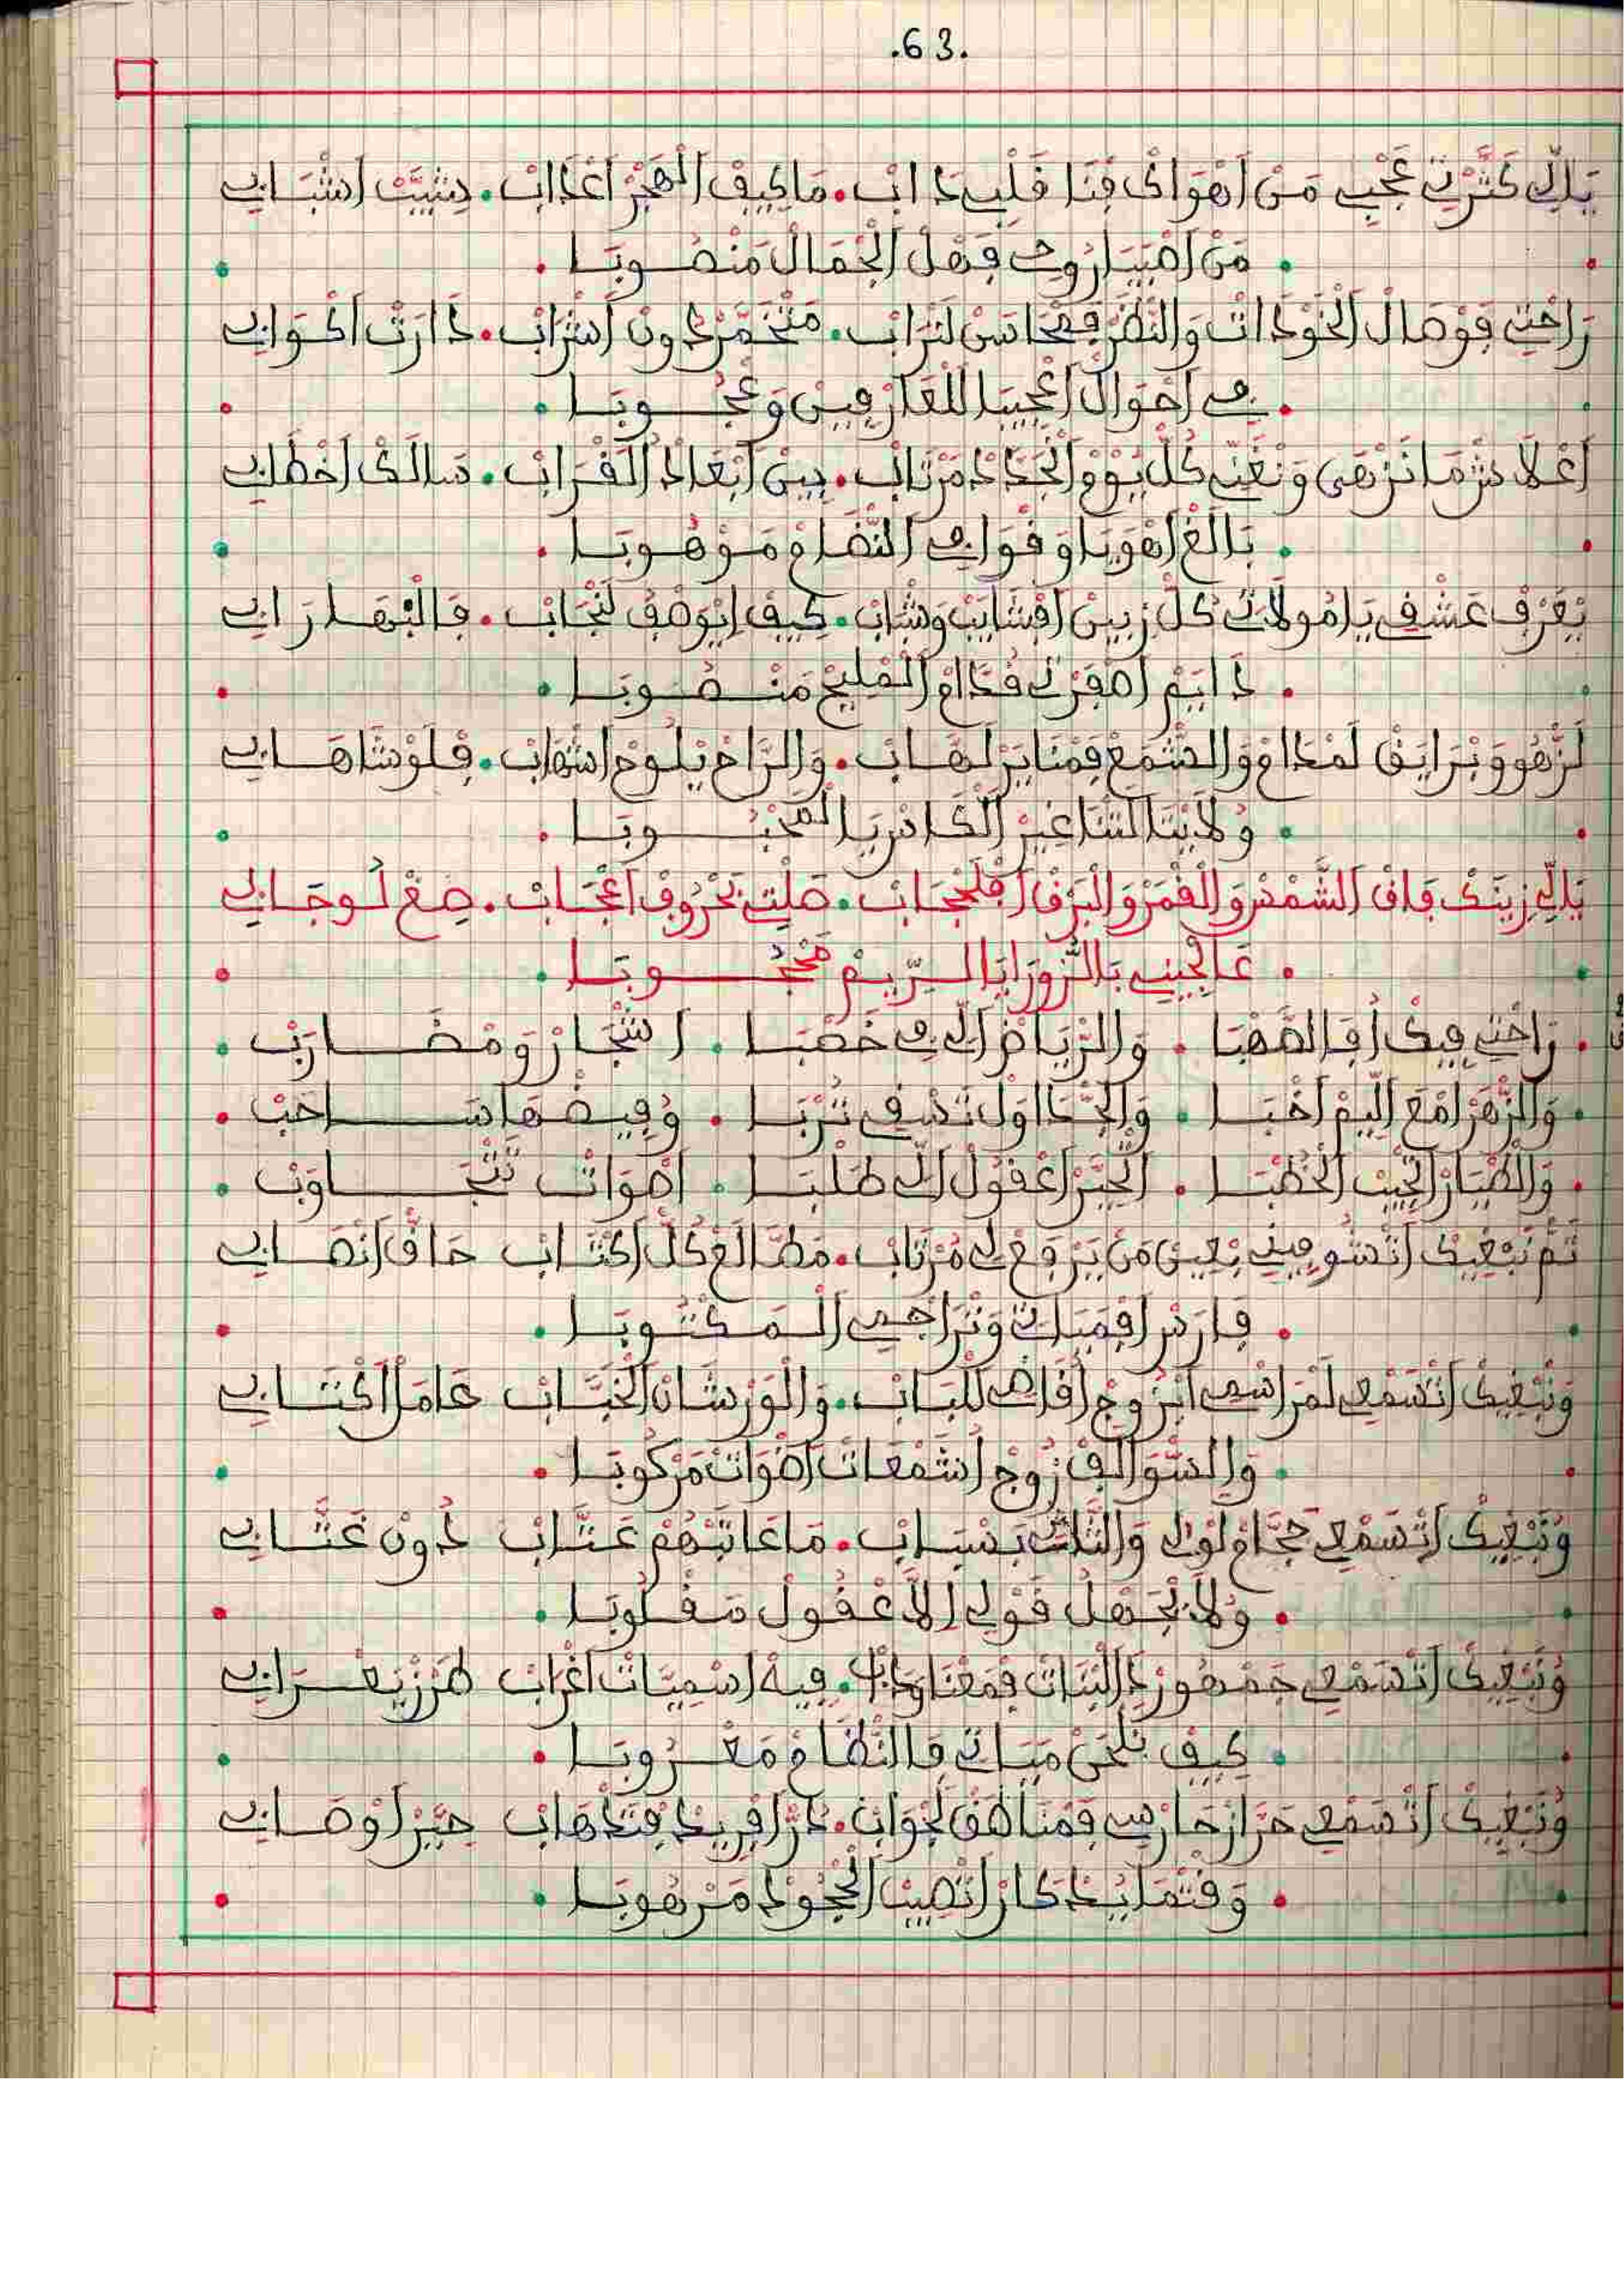 .63.
يَاللِّي كَثَّرْتِي عَجْبِي مَنْ اَهْوَاكْ فْنَا قَلْبِي دَابْ. مَا كِيفْ اَلْهَجْرْ اَعْذَابْ. شَيَّبْ اَشْبَابِي
مَنْ اَصْبَايَا رُوحِي فَهْلْ اَلْجْمَالْ مَنْصُوبَا
رَاحْتِي فَوْصَالْ اَلْخَوْدَاتْ وَالنّْظَرْ فَمْحَاسَنْ لَتْرَابْ. مَتْخَمَّرْ دُونْ اَشْرَابْ. دَارَتْ اَكْوَابِي
فِي اَحْوَالْ اَعْجِيبَا لَلْعَارْفِينْ وَعْجُوبَا
اَعْلاَشْ مَا نَزْهَى وَنْغَنِّي كُلّْ يُومْ وَالْجَدَّادْ مَرْتَابْ. بِينْ اَبْعَادْ اَلْقْرَابْ. سَالَكْ اَخْطَابِي
بَالَغْ اَهْوِيَا وَقْوَافِي اَلنّْضَامْ مَوْهُوبَا
يَعْرَفْ عَشْقِي يَا مُولاَتِي كُلّْ زِينْ اَفْشَايَبْ وَشَابْ. كِيفْ اِيُوَصْفْ لَنْجَابْ. فَالْبْهَا رَابِي
دَايَمْ اَصْفَرْ لِي قُدَّامْ اَلْمْلِيحْ مَنْصُوبَا
لَزْهُو وَبْرَايَقْ لَمْدَامْ وَالشّْمَعْ فَمْنَايَرْ لَهَّابْ. وَالرَّاحْ يْلُوحْ اَشْهَابْ. فْلَوْشَاهَابِي
وُلاَ بْنَا النَّا غِيرْ اَلْكَاسْ يَا اَلْمَحْبُوبَا
يَاللِّي زِينَكْ فَاقْ اَلشَّمْسْ وَالْقْمَرْ وَالْبَرْقْ اَفْلَحْجَابْ. صَلْتِي بَحْرُوفْ اَعْجَابْ. ضِيغْ لُوجَابِي
عَالْجِينِي بَالزُّورَا يَا الرِّيمْ مَحْجُوبَا
رَاحْتِي فِيكْ اُفَالصَّهْبَا. وَالرّْيَاضْ اَللِّي فِي خَصْبَا. اَشْجَارْ وَمْضَارَبْ
وَالزّْهَرْ اَمْعَ اَلِيمْ اَخْبَا. وَالْجْدَاوَلْ تَسْقِي تُرْبَا. وُفِيضْهَا سَاحَبْ
وَالطّْيَارْ اَتْجِيبْ اَلْخُطْبَا. اَتْحِيَّرْ اَعْقُولْ اَللِّي طَلْبَا. اَصْوَاتْ تَتْجَاوَبْ
تَمّْ نَبْغِيكْ اَتْشُوفِينِي بْعِينْ مَنْ يَرْفَعْ لِي مُرْتَابْ. مَطَّالَعْ كُلّْ اَكْتَابْ حَافْ اَنْصَابِي
فَارَسْ اَفْمْيَاتِي وَتْرَاجْمِي اَلْمَكْتُوبَا
وُنَبْغِيكْ اَتْسَمْعِي لَمْرَاسْمِي اَبْزُوجْ اَفْرَاضِي لَلْبَابْ. وَالْوَرْشَانْ اَلْخَبَّابْ حَامَلْ اَكْتَابِي
وَالسّْوَالَفْ زُوجْ اَشْمْعَاتْ اَضْوَاتْ مَرْكُوبَا
وُنَبْغِيكْ اَتْسَمْعِي حَجَّامْ لَوّْلِي وَالثَّلْثْ بَسْبَابْ. مَا عَاتَبْهُمْ عَتَّابْ دُونْ عَتَّابِي
وُلاَ يَجْهَلْ قَوْلِي اِلاَّ عْقُولْ مَقْلُوبَا
وُنَبْغِيكْ اَتْسَمْعِي جَمْهُورْ دَ الْبْنَاتْ فَمْعْنَا وَجَابْ. فِيهْ اَسْمِيَّاتْ اَغْرَابْ طَرْزْ يَعْرَابِي
كِيفْ نَلْحَنْ مْيَاتِي فَالنّْضَامْ مَعْرُوبَا
وُنَبْغِيكْ اَتْسَمْعِي حَرَّازْ حَارْسِي فَمْنَاطَقْ لَجْوَابْ. دَرّْ اَفْرِيدْ فَتْدْهَابْ حِيَّرْ اَوْصَابِي
وَقْتْمَا يُدْكَارْ اَتْصِيبْ اَلْجْحُودْ مَرْهُوبَا